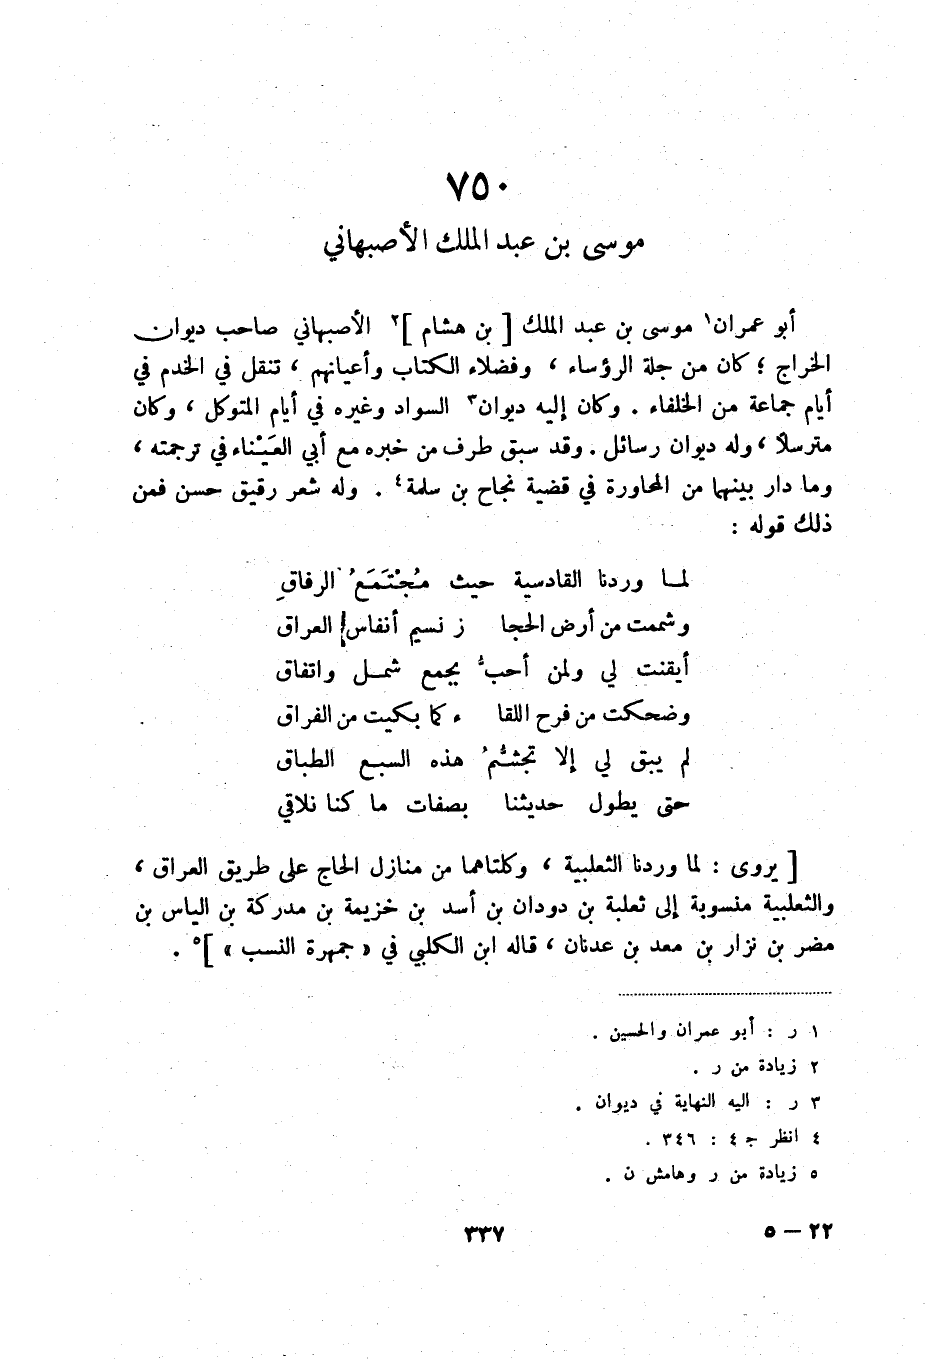 ٧٥٠
موسى بن عبد الملك الأصبهاني
أبو عمران١ موسى بن عبد الملك [ بن هشام ]٢ الأصبهاني صاحب ديوان
الخراج ؛ كان من جلة الرؤساء ، وفضلاء الكتاب وأعيانهم ، تنقل في الخدم في
أيام جماعة من الخلفاء . وكان إليه ديوان٣ السواد وغيره في أيام المتوكل ، وكان
مترسلاً ، وله ديوان رسائل . وقد سبق طرف من خبره مع أبي العَيْناء في ترجمته ،
وما دار بينهما من المحاورة في قضية نجاح بن سلمة٤ . وله شعر رقيق حسن فمن
ذلك قوله :
لمـا وردنا القادسية حيث مُجْتَمَعُ الرفاقِ
وشممت من أرض الحجا ز نسيم أنفاس العراق
أيقنت لي ولمن أحبُّ بجمع شمـل واتفاق
وضحكت من فرح اللقا ء كما بكيت من الفراق
لم يبق لي إلا تجشُّمُ هذه السبع الطباق
حتى يطول حديثنا بصفات ما كنا نلاقي
[ يروى : لما وردنا الثعلبية ، وكلتاهما من منازل الحاج على طريق العراق ،
والثعلبية منسوبة إلى ثعلبة بن دودان بن أسد بن خزيمة بن مدركة بن الياس بن
مضر بن نزار بن معد بن عدنان ، قاله ابن الكلبي في « جمهرة النسب » ]٥ .
١ ر : أبو عمران والحسين .
٢ زيادة من ر .
٣ ر : اليه النهاية في ديوان .
٤ انظر ج ٤ : ٣٤٦ .
٥ زيادة من ر وهامش ن .
٢٢ – ٥ ٣٣٧